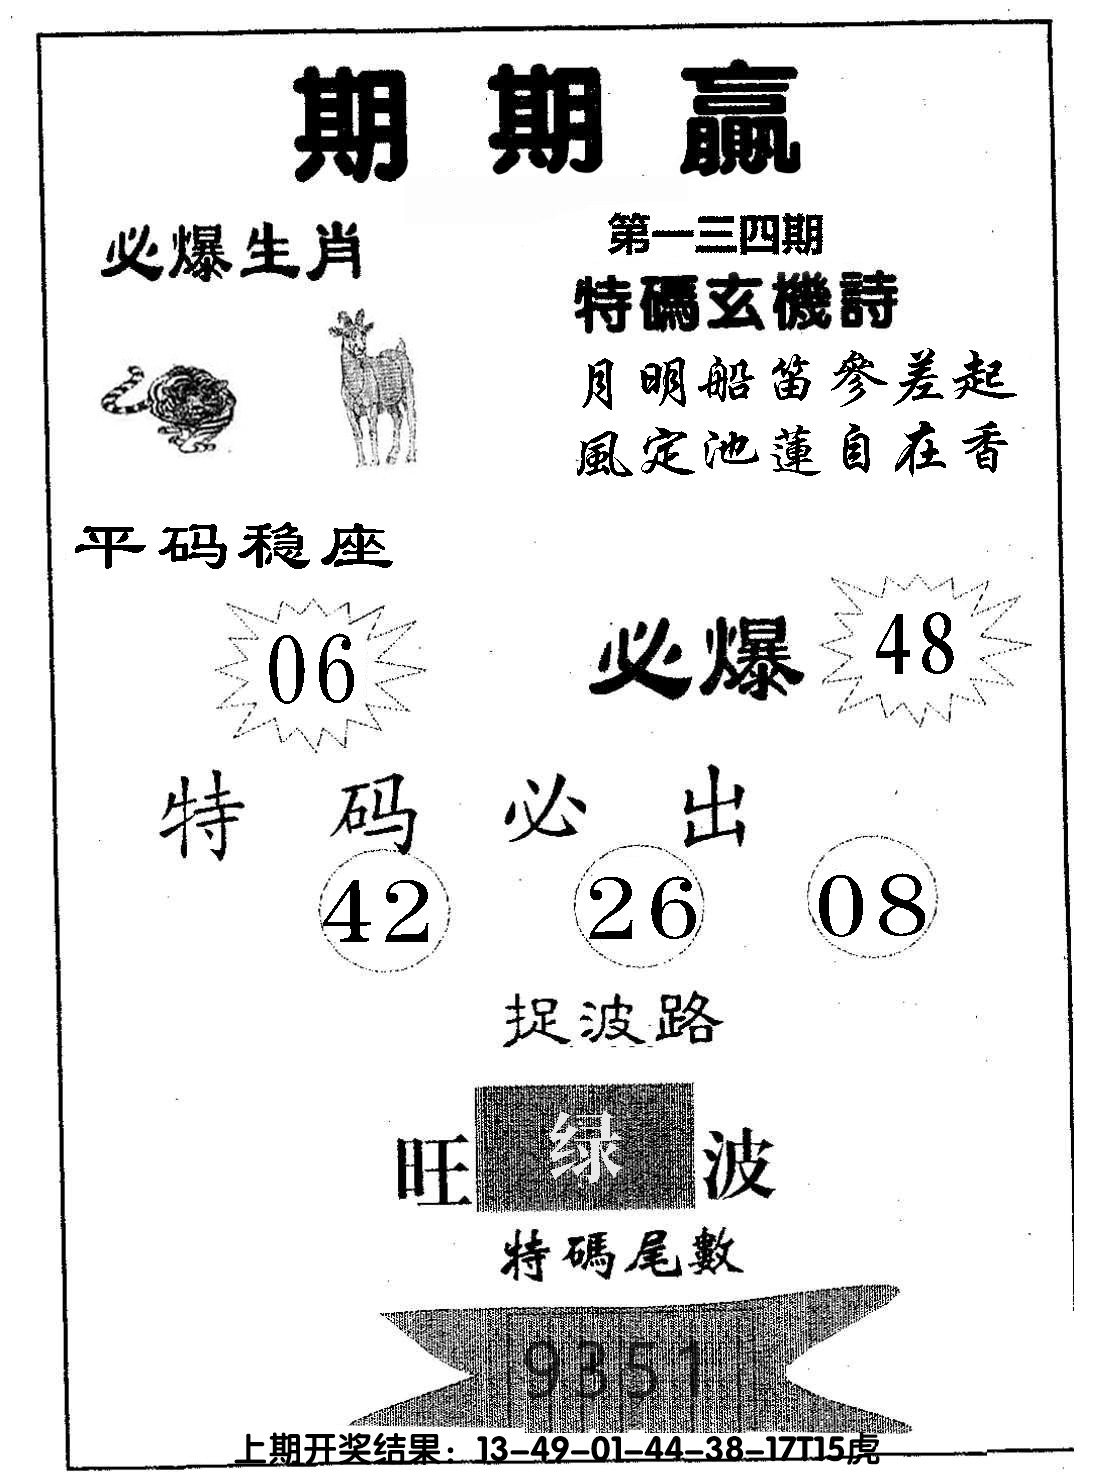 期期赢
必爆生肖
第一三四期
特碼玄機詩
月明船笛參差起
風定池蓮自在香
平码稳座
06
必爆 48
特码必出
42 26 08
捉波路
旺绿波
特碼尾數
9351
上期开奖结果：13-49-01-44-38-17T15虎